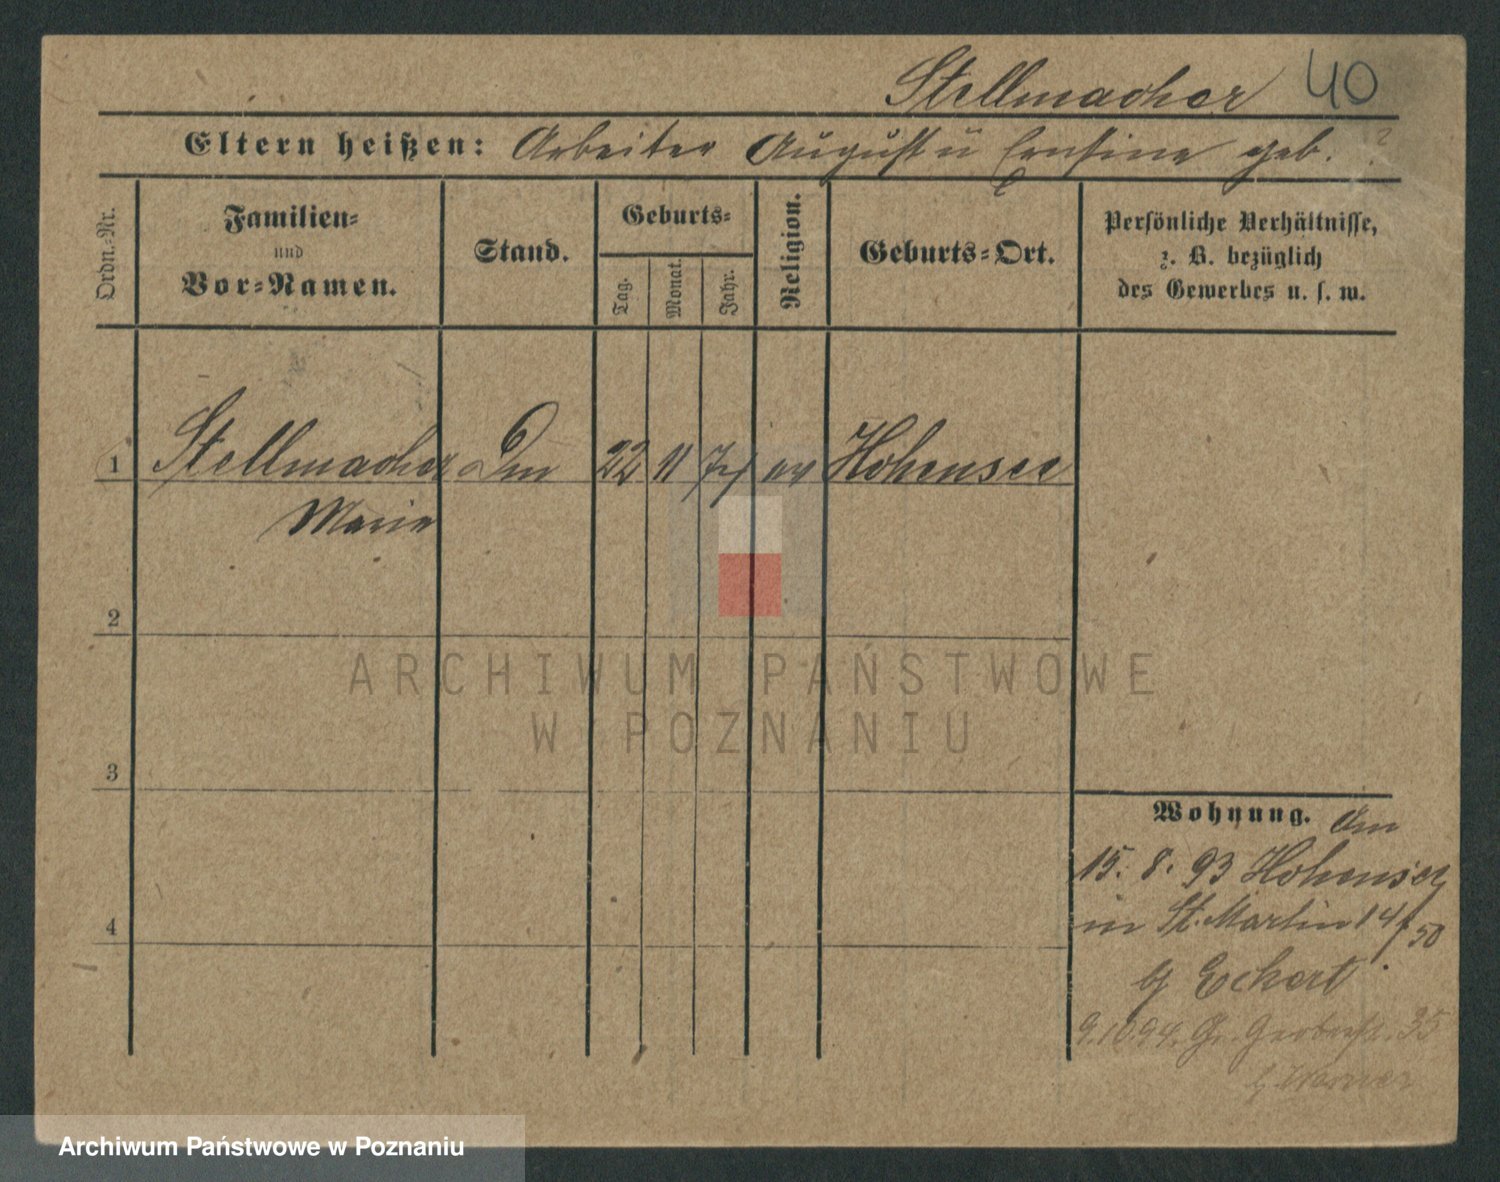 Stellmacher 40
Eltern heißen: Arbeiter August u Ernstine geb. ?
Ordn.-Nr.
Familien-
und
Vor-Namen.
Stand.
Geburts-
Tag.
Monat.
Jahr.
Religion.
Geburts-Ort.
Persönliche Verhältnisse,
z. B. bezüglich
des Gewerbes u. s. w.
1 Stellmacher 22 11 ev Hohensee
Marie
2
3
4
Wohnung. am
15. 8. 93 Hohensee
in St. Martin 14/50
b Eckert
9.10.94. Gr. Gerberstr. 35
b
ARCHIWUM PAŃSTWOWE
W POZNANIU
Archiwum Państwowe w Poznaniu